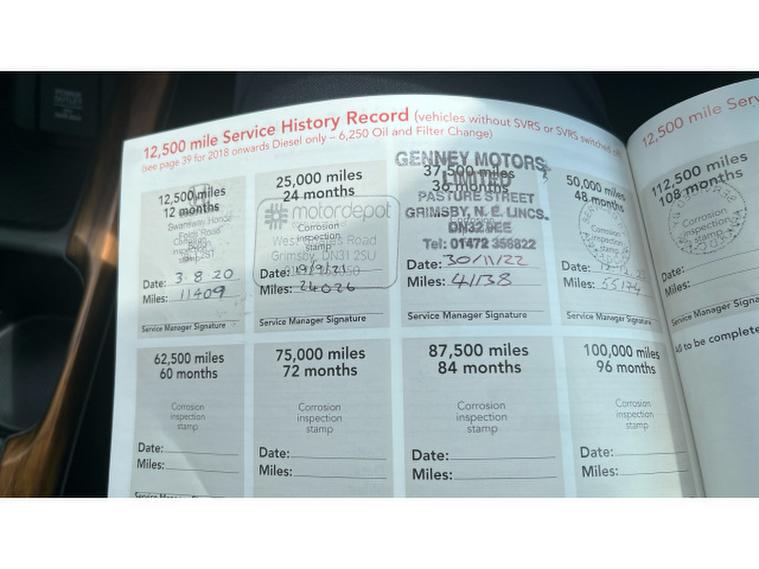 12,500 mile Service History Record (vehicles without SVRS or SVRS switched off)
(see page 39 for 2018 onwards Diesel only – 6,250 Oil and Filter Change)
12,500 miles
12 months
Swansway Honda
Date: 3.8.20
Miles: 11409
Service Manager Signature
25,000 miles
24 months
motordepot
Corrosion
inspection
stamp
Road
Grimsby, DN31 2SU
Date: 19/9/21
Miles: 24026
Service Manager Signature
37,500 miles
36 months
GENNEY MOTORS
LIMITED
PASTURE STREET
GRIMSBY, N. E. LINCS.
DN32 9EE
Tel: 01472 358822
Date: 30/11/22
Miles: 41138
Service Manager Signature
50,000 miles
48 months
Corrosion
inspection
stamp
Date:
Miles: 55174
Service Manager Signature
62,500 miles
60 months
Corrosion
inspection
stamp
Date:
Miles:
Service Manager
75,000 miles
72 months
Corrosion
inspection
stamp
Date:
Miles:
87,500 miles
84 months
Corrosion
inspection
stamp
Date:
Miles:
100,000 miles
96 months
Corrosion
inspection
stamp
Date:
Miles:
12,500 mile
112,500 miles
108 months
Corrosion
inspection
stamp
Date:
Miles:
Service Manager
All to be complete